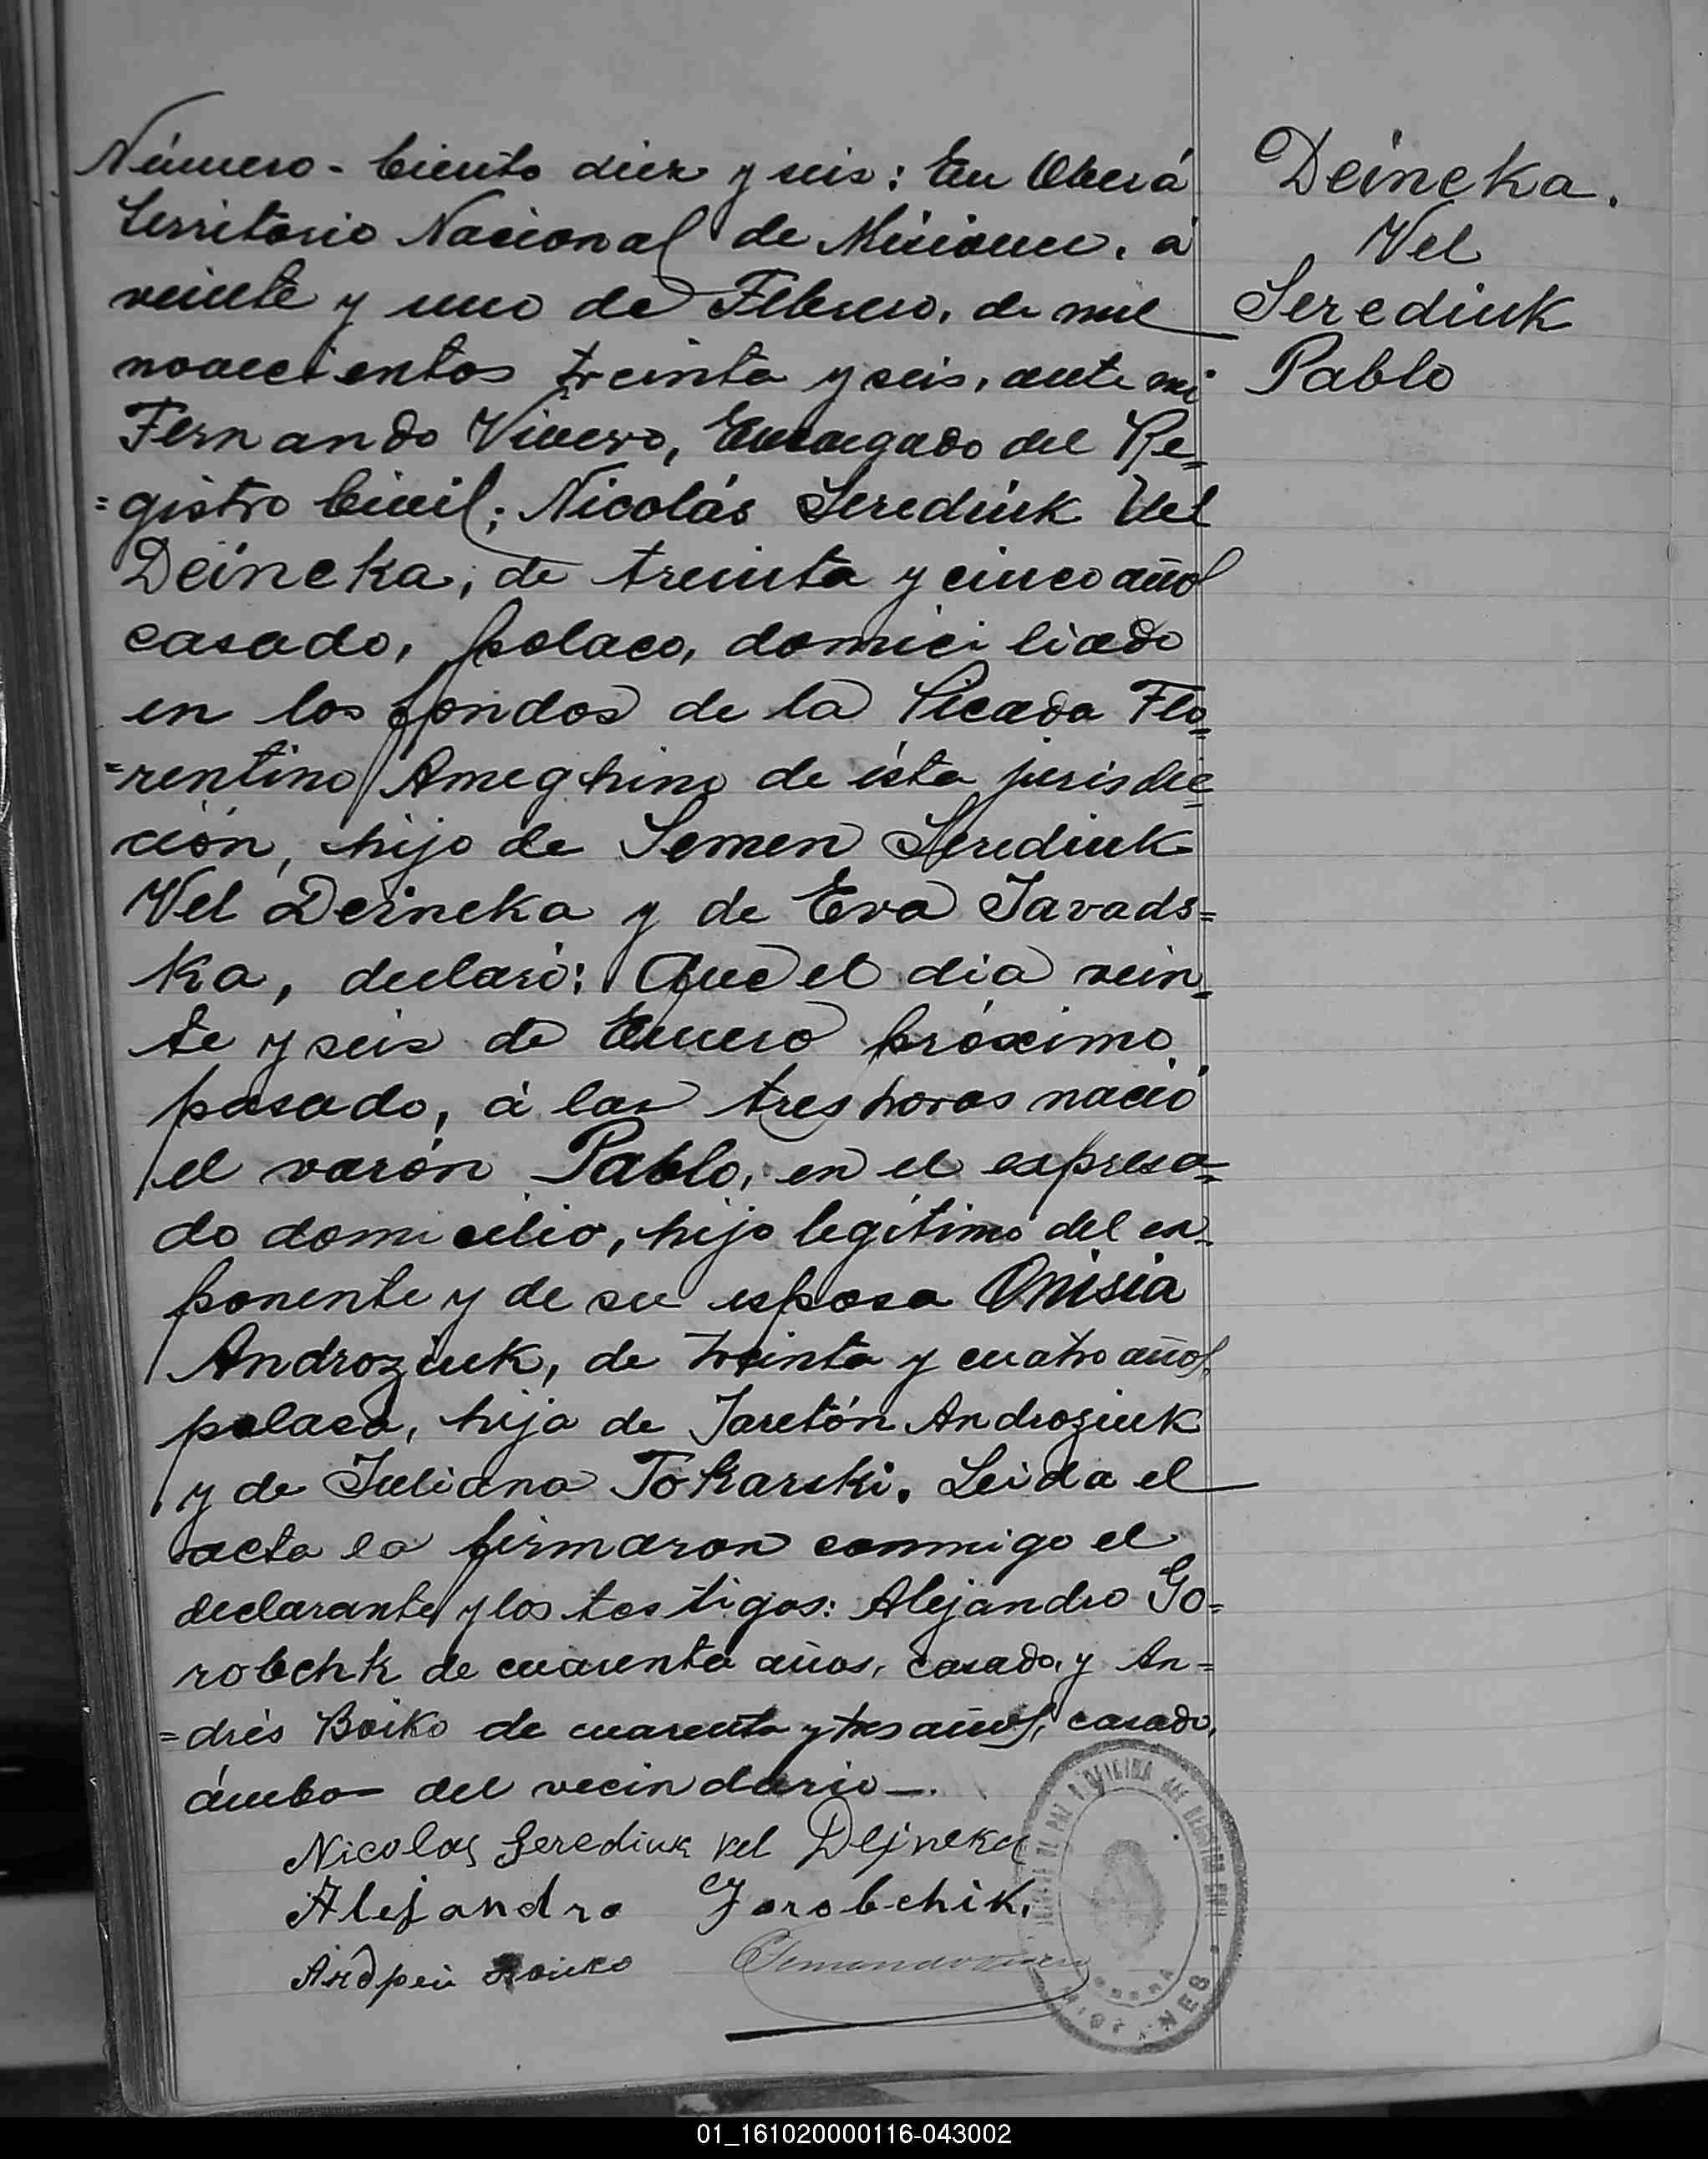 Número - Ciento diez y seis: En Oberá
Territorio Nacional de Misiones, á
veinte y uno de Febrero, de mil
novecientos treinta y seis, ante mi
Fernando Vivero, Encargado del Re=
=gistro Civil; Nicolás Serediuk Vel
Deineka, de treinta y cinco años
casado, polaco, domiciliado
en los fondos de la Picada Flo=
=rentino Ameghino de ésta jurisdic=
ción, hijo de Semen Serediuk
Vel Deineka y de Eva Savads=
ka, declaró: Que el dia vein=
te y seis de Enero próximo
pasado, á las tres horas nació
el varón Pablo, en el expresa=
do domicilio, hijo legítimo del ex=
ponente y de su esposa Onisia
Androziuk, de treinta y cuatro años,
polaca, hija de Jaretón Androziuk
y de Juliana Tokarski. Leida el
acta la firmaron conmigo el
declarante y los testigos: Alejandro Go=
robchk de cuarenta años, casado, y An=
=drés Boiko de cuarenta y tres años, casado,
ámbos del vecindario.
Nicolas Serediuk vel Dejneka
Alejandro Gorobchik.
Андреи
Deineka.
Vel
Serediuk
Pablo
MISIONES
01_161020000116-043002